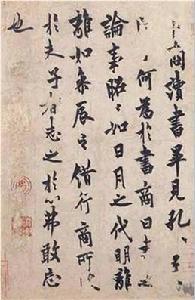 卜商讀書畢見孔〻子〻
何為於書商曰書之
論事昭〻如日月之代明離
離如參辰之錯行商所
於夫子者志之於心弗敢忘
也